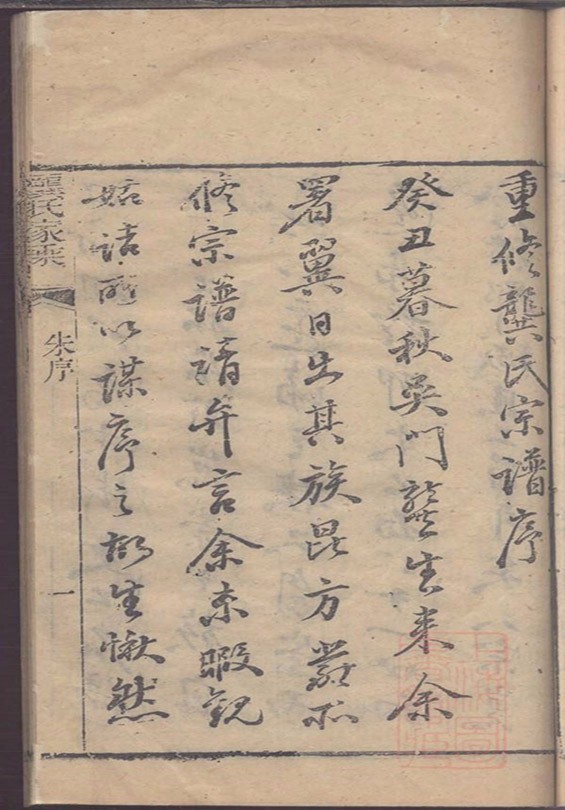 重修龔氏宗譜序
癸丑暮秋吳門龔生來余
署翼日出其族昆方嚴所
修宗譜請弁言余未暇觀
姑詰所以謀序之故生愀然
龔氏家乘 朱序 一